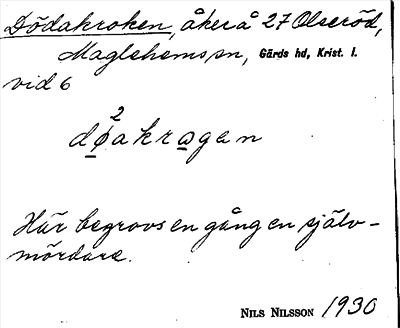 Dödakroken, åker å 27 Olseröd,
Maglehems sn, Gärds hd, Krist. l.
vid 6
2
dø̲akrω̲gan
Här begrovs en gång en själv-
mördare.
NILS NILSSON 1930